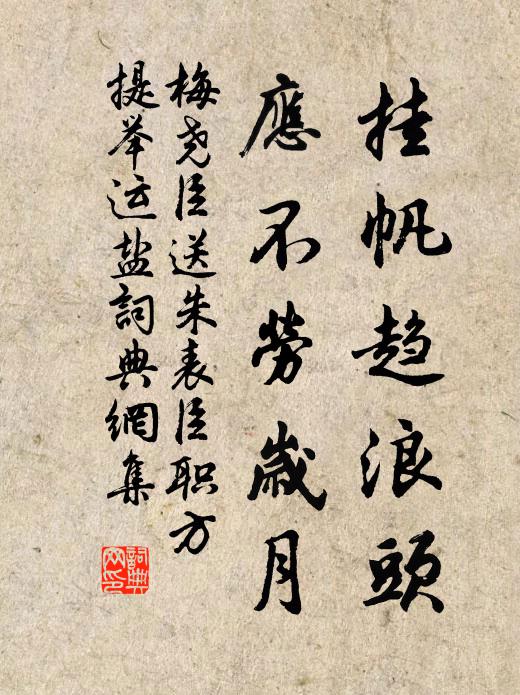 挂帆趋浪頭
應不勞歲月
梅尧臣送朱表臣职方
提举运盐詞典網集
詞典网印